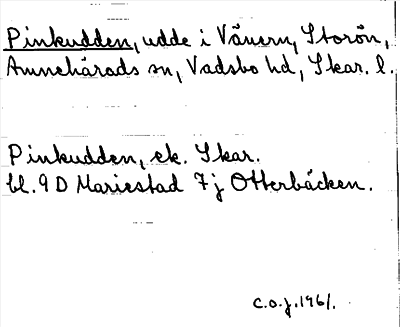 Pinkudden, udde i Vänern, Storön,
Amnehärads sn, Vadsbo hd, Skar. l.
Pinkudden, ek. Skar.
bl. 9 D Mariestad 7j Otterbäcken.
C.O.J. 1961.